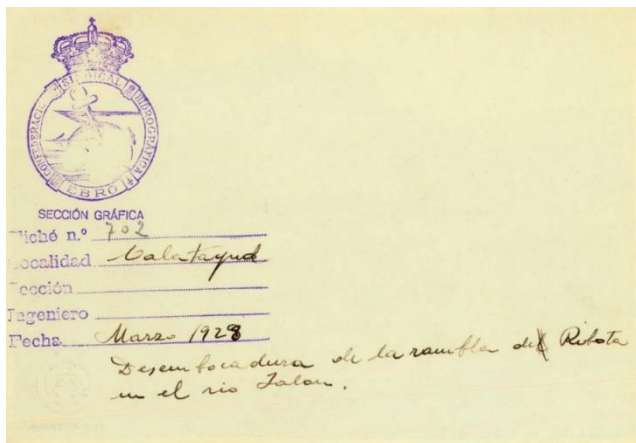 CONFEDERACION SINDICAL HIDROGRÁFICA
EBRO
SECCIÓN GRÁFICA
Cliché n.º 702
Localidad Calatayud
Sección
Ingeniero
Fecha Marzo 1928
Desembocadura de la rambla de Ribota
en el rio Jalon.